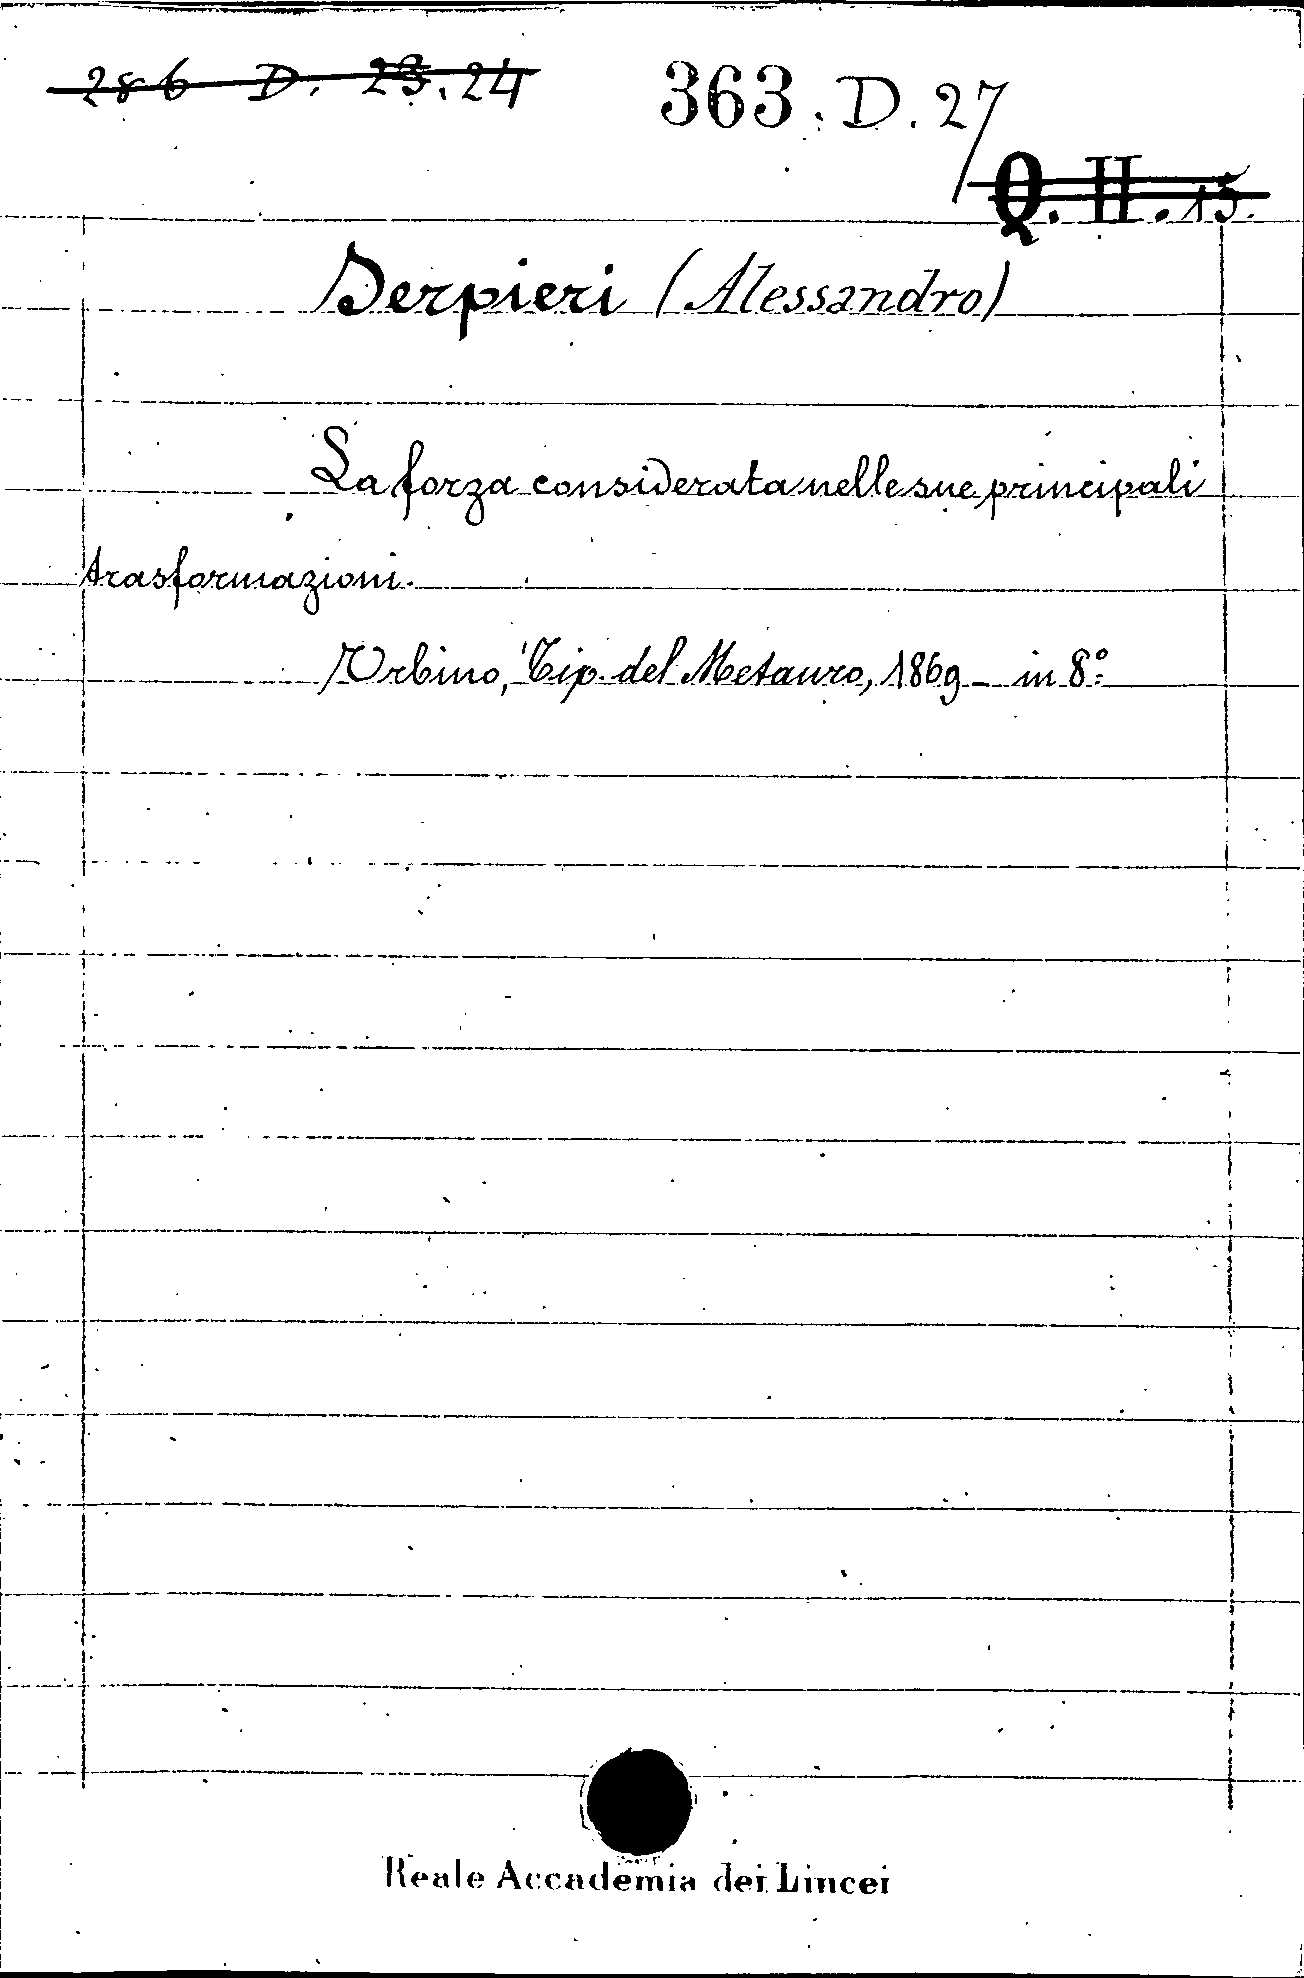 286 D. 23.24
363. D. 27
Q. II. 15.
Serpieri (Alessandro)
La forza considerata nelle sue principali
trasformazioni.
Urbino, Tip. del Metauro, 1869 - in 8º
Reale Accademia dei Lincei